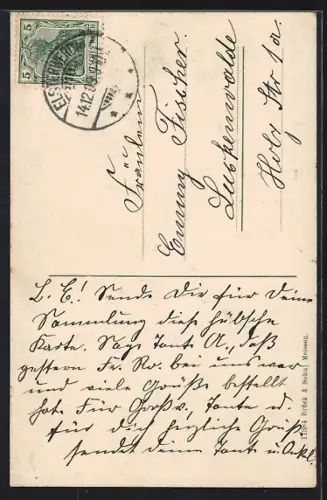 5 5
DEUTSCHES REICH
ELSTERWERDA
14.12.0
Fräulein
Emmy Fischer.
Luckenwalde
Holz Str 1a.
L. E! Sende Dir für Deine
Sammlung diese hübsche
Karte. Sage Tante A., daß
gestern Fr. Ro. bei uns war
und viele Grüße bestellt
hat. Für Großv., Tante u.
für dich herzliche Grüße
sendet deine Tante u. Onkel.
Brück & Sohn, Meissen.